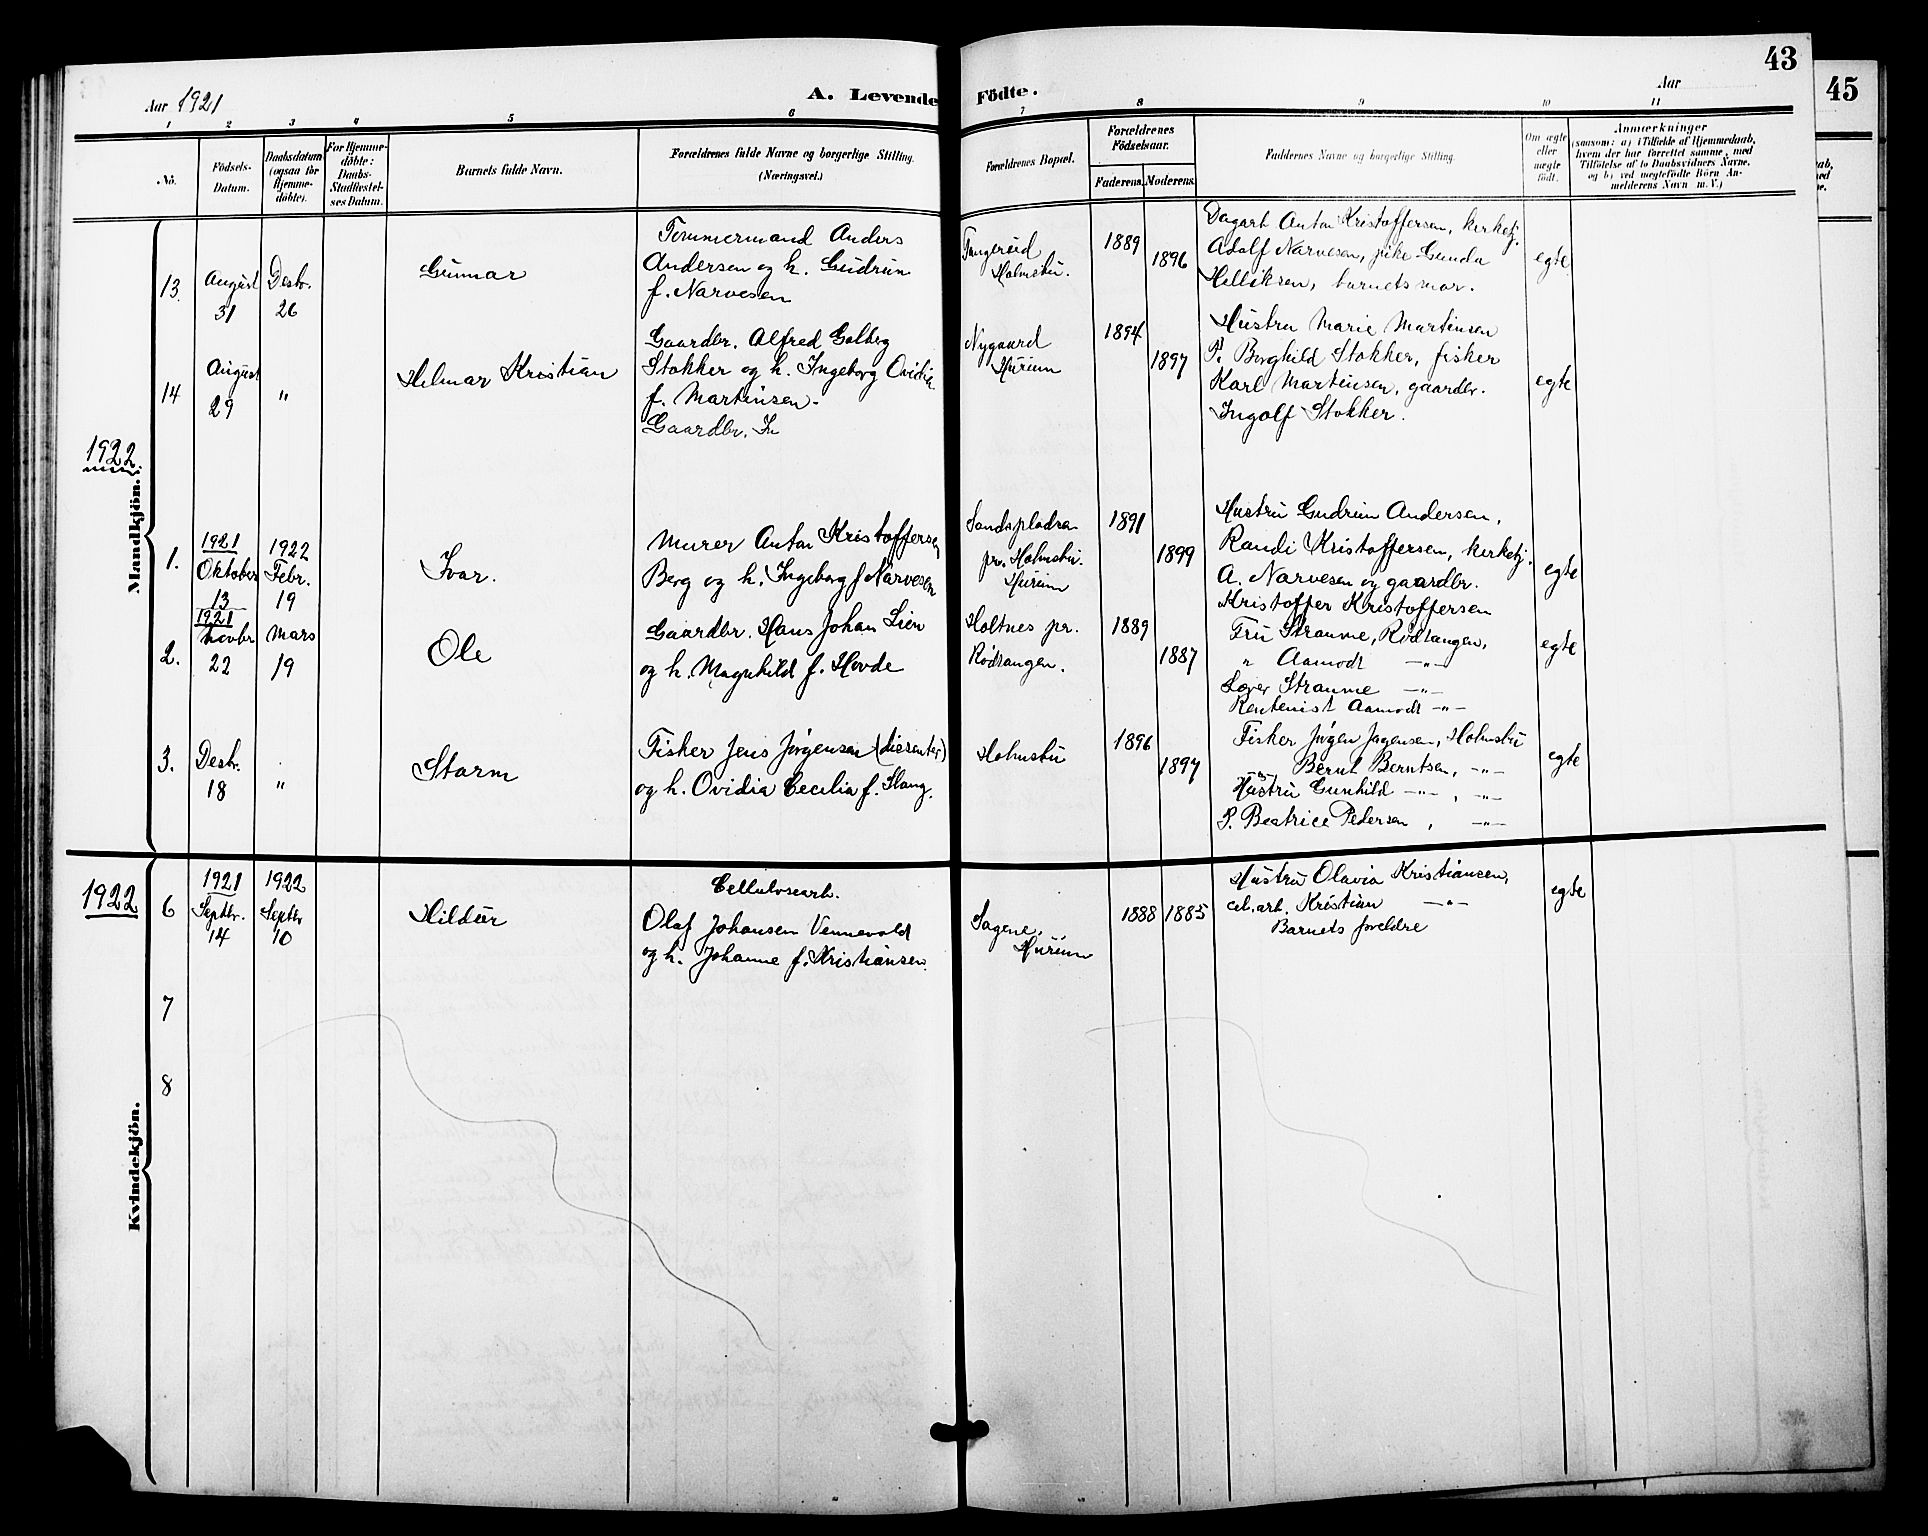 43
45
Aar 1921
A. Levende Födte.
Aar
1 2 3 4 5 6 7 8 9 10 11
No.
Födsels-Datum.
Daabsdatum (ogsaa for Hjemme-döbte).
For Hjemme-döbte: Daabs-Stadfæstel-ses Datum.
Barnets fulde Navn.
Forældrenes fulde Navne og borgerlige Stilling.
(Næringsvei.)
Forældrenes Bopæl.
Forældrenes Födselsaar.
Faderens. Moderens.
Faddernes Navne og borgerlige Stilling.
Om ægte eller uægte födt.
Anmærkninger
(saasom: a) i Tilfælde af Hjemmedaab,
hvem der har forrettet samme, med
Tilföielse af to Daabsvidners Navne.
og b) ved uegtefödte Börn An-
melderens Navn m. V.)
Mandkjön.
13.
August
31
Desbr.
26
Gunnar
Tømmermand Anders
Andersen og h. Gudrun
f. Narvesen
Tangerud
Holmsbu.
1889
1896
Dagarb Anton Kristoffersen, kirketj.
Adolf Narvesen, pike Gunda
Helliksen, barnets mor.
egte
14
August
29
"
Helmar Kristian
Gaardbr. Alfred Golberg
Stokker og h. Ingeborg Ovidia
f. Martinsen.
Gaardbr. In
Nygaard
Hurum
1894
1897
Hustru Marie Martinsen
P. Borghild Stokker, fisker
Karl Martinsen, gaardbr.
Ingolf Stokker.
egte
1922
1.
1921
Oktober
13
1922
Febr.
19
Ivar.
Murer Anton Kristoffersen
Berg og h. Ingeborg f Narvesen
Sandspladsen
pr. Holmsbu.
Hurum
1891
1899
Hustru Gudrun Andersen,
Randi Kristoffersen, kirketj.
A. Narvesen og gaardbr.
Kristoffer Kristoffersen
egte
2.
1921
Novbr
22
Mars
19
Ole
Gaardbr. Hans Johan Lien
og h. Magnhild f. Hovde
Holtnes pr.
Rødtangen.
1889
1887
Fru Straume, Rødtangen,
" Aamodt —"—
Læger Straume —"—
Rentenist Aamodt —"—
egte
3.
Desbr.
18
"
Storm
Fisker Jens Jørgensen (disenter)
og h. Ovidia Cecilia f. Stang.
Holmsbu
1896
1897
Fisker Jørgen Jørgensen, Holmsbu
—"— Bernt Berntsen, —"—
Hustru Gunhild —"—, —"—
P. Beatrice Pedersen, —"—
egte
Kvindekjön.
1922
6
1921
Septbr.
14
1922
Septbr
10
Hildur
Cellulosearb.
Olaf Johansen Vennevold
og h. Johanne f. Kristiansen.
Sagene,
Hurum
1888 1885
Hustru Olavia Kristiansen,
cel. arb. Kristian —"—
Barnets foreldre
egte
7
8